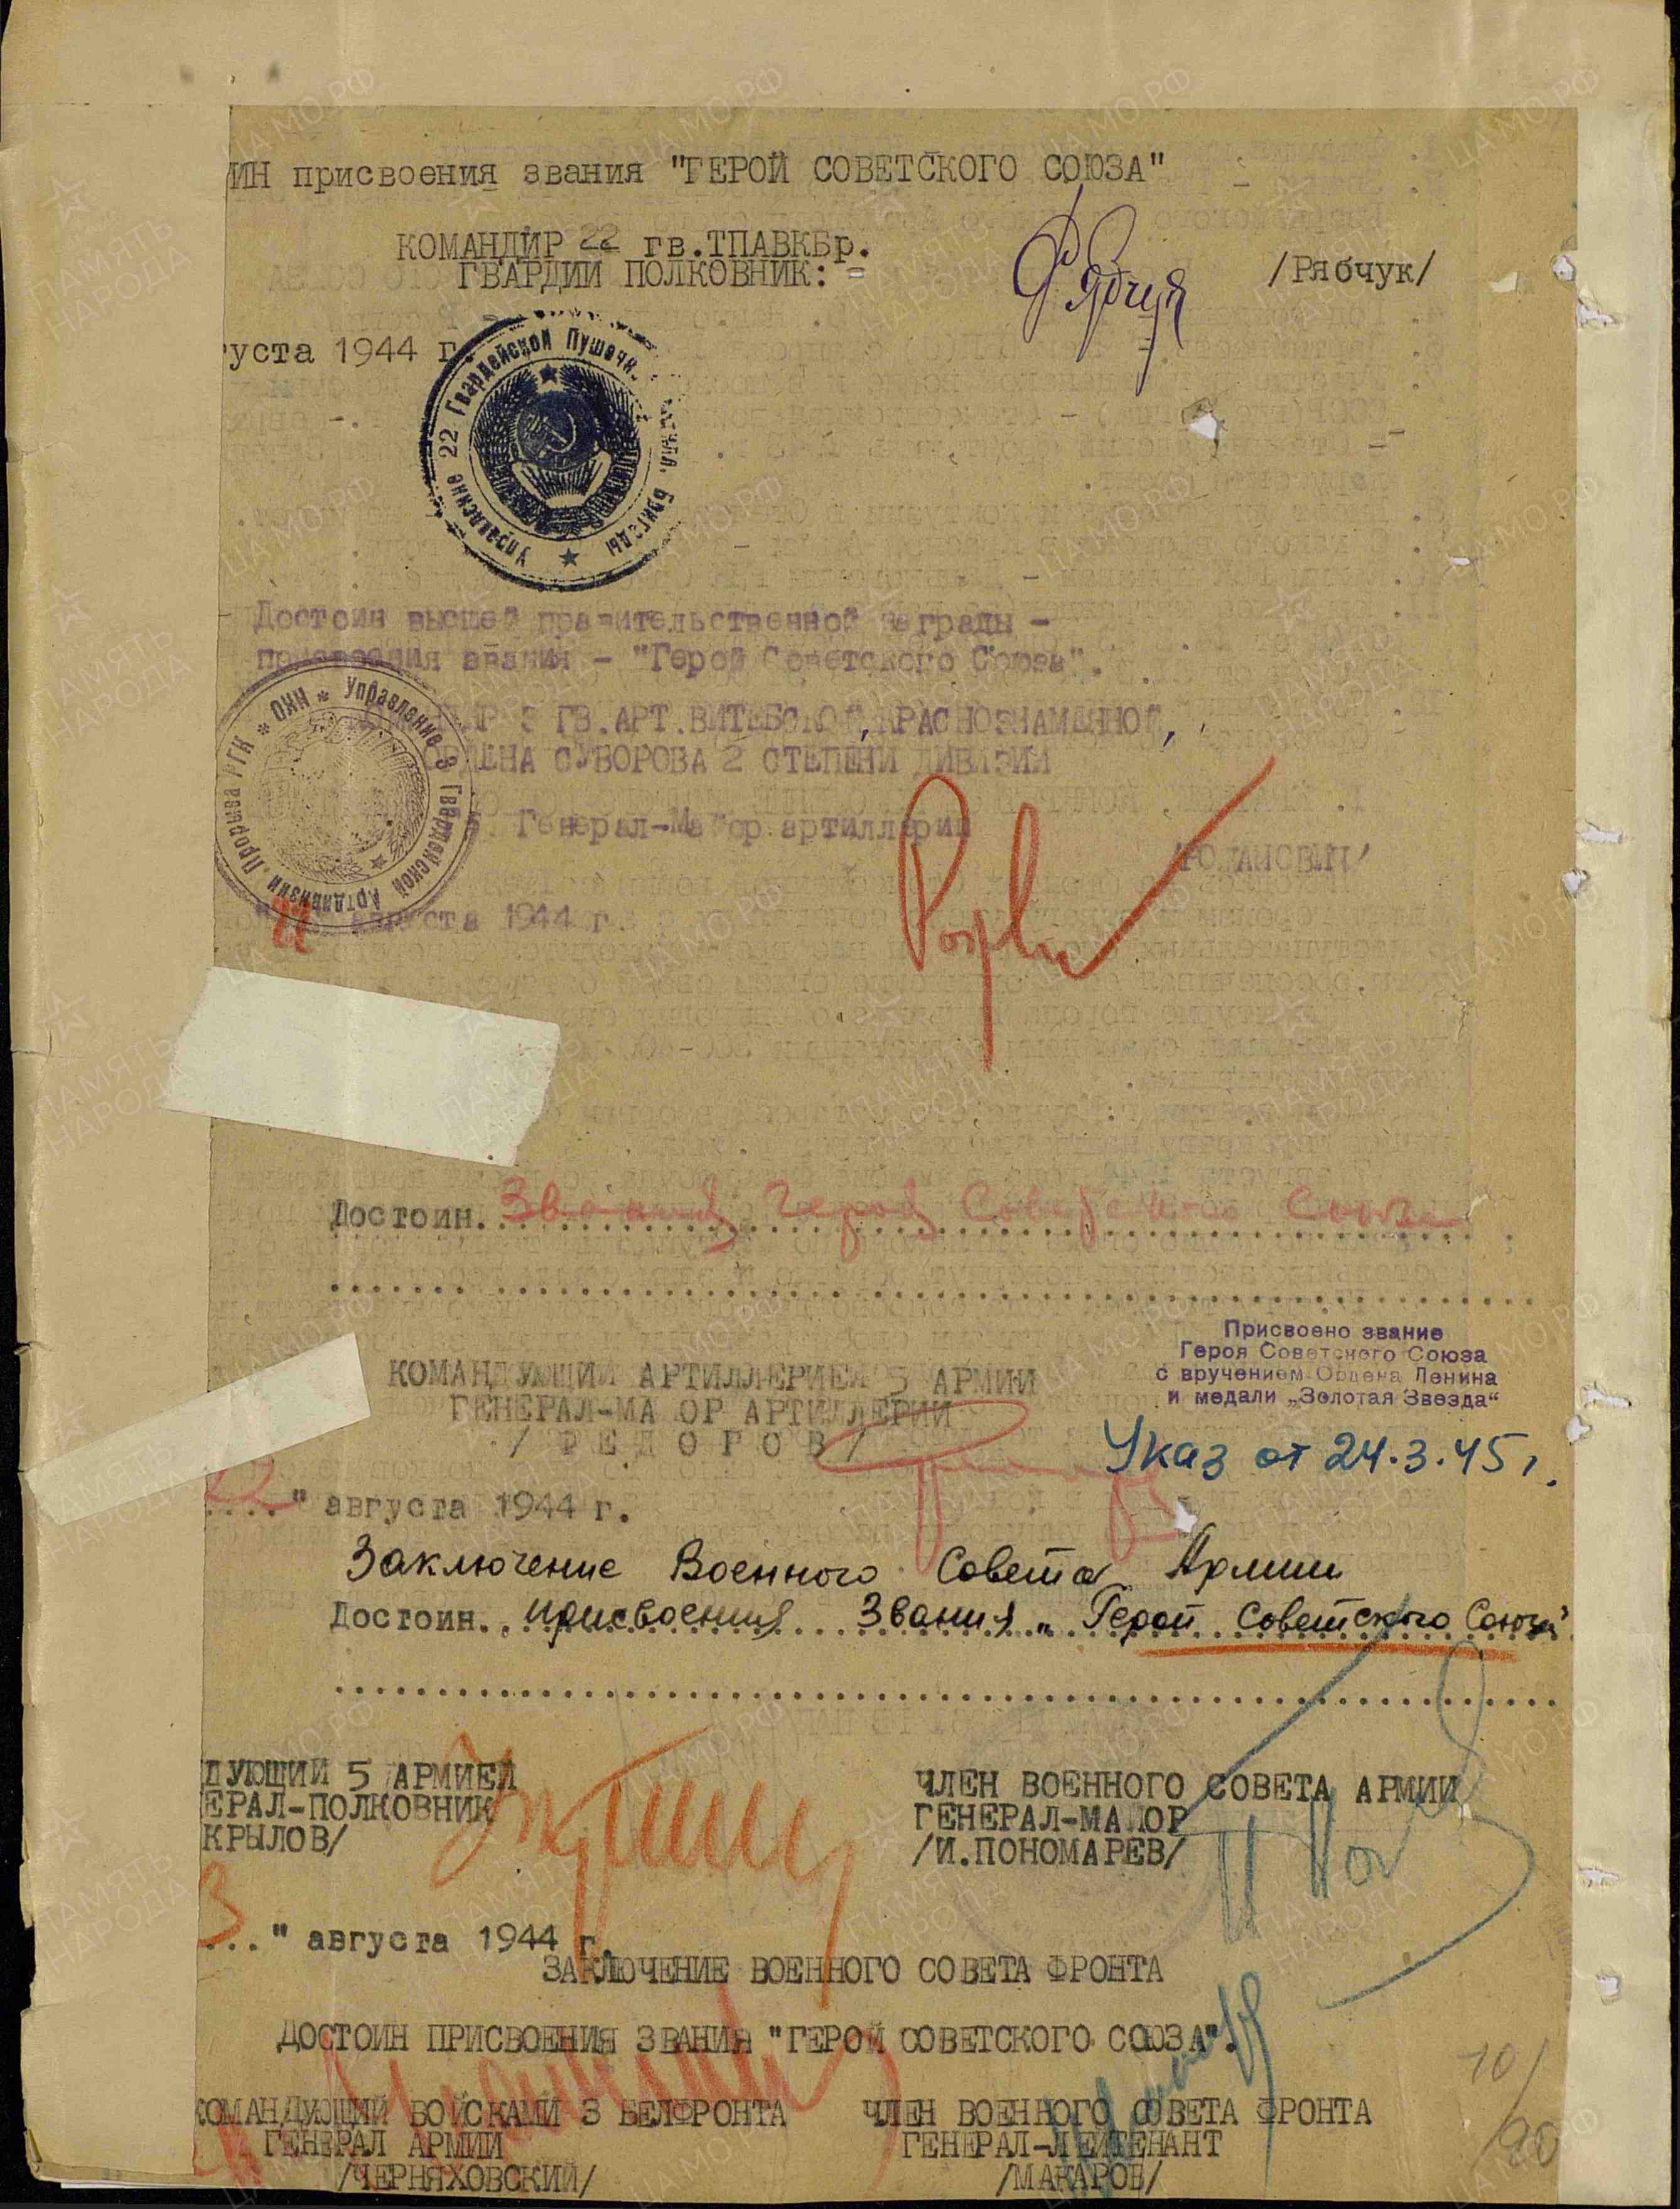 ИН присвоения звания "ГЕРОЙ СОВЕТСКОГО СОЮЗА"
КОМАНДИР 22 гв.ТПАВКБр.
ГВАРДИИ ПОЛКОВНИК: =
/Рябчук/
густа 1944 г.
Управление 22 Гвардейской Пушечн. Бригады
Достоин высшей правительственной награды -
присвоения звания - "Герой Советского Союза".
Управление 3 Гвардейской Артдивизии Прорыва РГК * ОНН *
3 ГВ.АРТ.ВИТЕБСКОЙ, КРАСНОЗНАМЕННОЙ,
ОРДЕНА СУВОРОВА 2 СТЕПЕНИ ДИВИЗИИ
Генерал-Майор артиллерии
августа 1944 г.
Достоин. Звания Героя Советского Союза
Присвоено звание
Героя Советского Союза
с вручением Ордена Ленина
и медали „Золотая Звезда“
КОМАНДУЮЩИЙ АРТИЛЛЕРИЕЙ 5 АРМИИ
ГЕНЕРАЛ-МА ОР АРТИЛЛЕРИИ
/ Ф Е Д О Р О В /
Указ от 24.3.45 г.
22" августа 1944 г.
Заключение Военного Совета Армии
Достоин. присвоения Звания „Герой Советского Союза"
ДУЮЩИЙ 5 АРМИЕЙ
ЕРАЛ-ПОЛКОВНИК
КРЫЛОВ/
ЧЛЕН ВОЕННОГО СОВЕТА АРМИИ
ГЕНЕРАЛ-МАЙОР
/И.ПОНОМАРЕВ/
3..." августа 1944 г.
ЗАКЛЮЧЕНИЕ ВОЕННОГО СОВЕТА ФРОНТА
ДОСТОИН ПРИСВОЕНИЯ ЗВАНИЯ "ГЕРОЙ СОВЕТСКОГО СОЮЗА".
КОМАНДУЮЩИЙ ВОЙСКАМИ 3 БЕЛФРОНТА
ГЕНЕРАЛ АРМИИ
/ЧЕРНЯХОВСКИЙ/
ЧЛЕН ВОЕННОГО СОВЕТА ФРОНТА
ГЕНЕРАЛ-ЛЕЙТЕНАНТ
/МАКАРОВ/
10/
/20
ПАМЯТЬ НАРОДА
ЦА МО.РФ